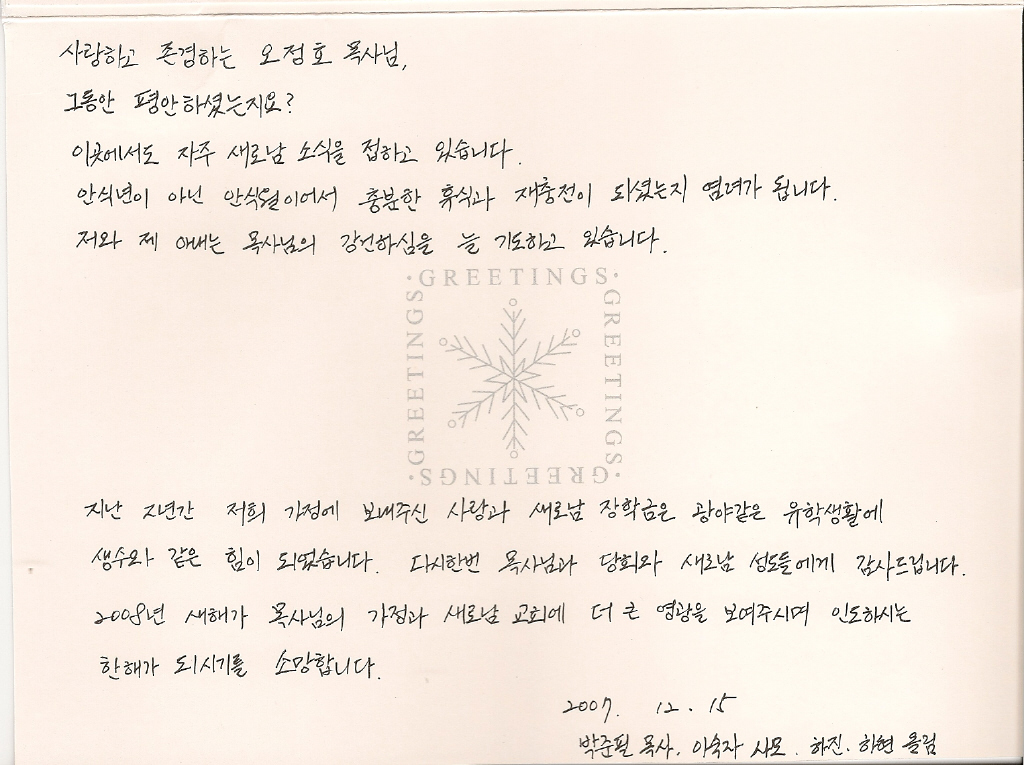 사랑하고 존경하는 오정호 목사님,
그동안 평안하셨는지요?
이곳에서도 자주 새로남 소식을 접하고 있습니다.
안식년이 아닌 안식월이어서 충분한 휴식과 재충전이 되셨는지 염려가 됩니다.
저와 제 아내는 목사님의 강건하심을 늘 기도하고 있습니다.
·GREETINGS·
GREETINGS
GREETINGS
·GREETINGS·
지난 2년간 저희 가정에 보내주신 사랑과 새로남 장학금은 광야같은 유학생활에
생수와 같은 힘이 되었습니다. 다시한번 목사님과 당회와 새로남 성도들에게 감사드립니다.
2008년 새해가 목사님의 가정과 새로남 교회에 더 큰 영광을 보여주시며 인도하시는
한해가 되시기를 소망합니다.
2007. 12. 15
박준필 목사. 이숙자 사모. 하진. 하현 올림